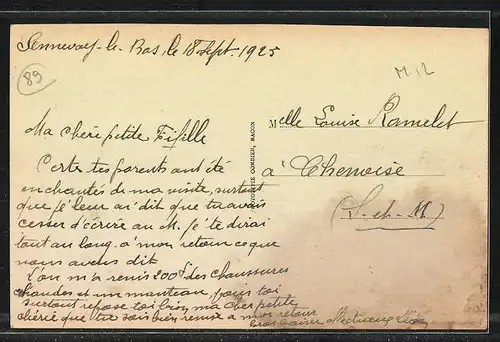 Sennevoy-le-Bas, le 18 Sept. 1925
89
M, L
Melle Louise Ramelet
à Chenoise
(S.-et-M.)
PHOTOTYPIE COMBIER, MACON
Ma chère petite Fifille
Certes tes parents ont été
enchantés de ma visite, surtout
que je leur ai dit que tu avais
cesser d'écrire au M. je te dirai
tout au long à mon retour ce que
nous avons dit
L'on m'a remis 200f des chaussures
chaudes et un manteau pour toi
surtout repose toi bien, ma chér petite
chérie que tu sois bien remise a mon retour
bons baiser